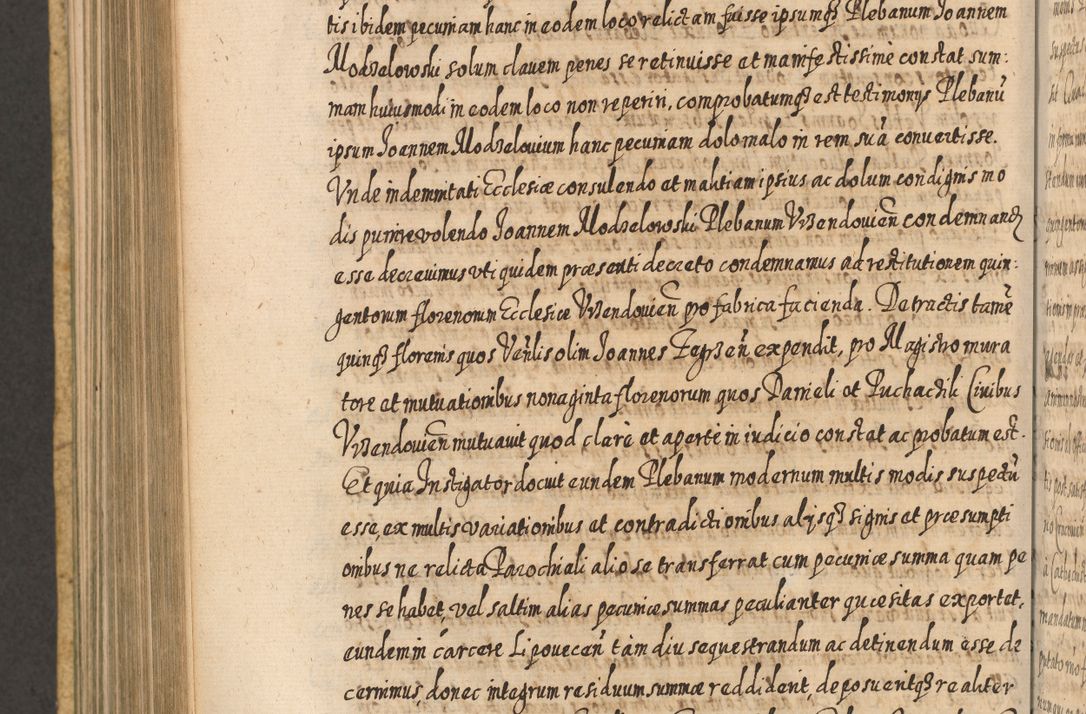 tis ibidem pecuniam hanc in eodem loco relictam fuisse ipsumq3 Plebanum Joannem
Modzelowski solum clauem penes se retinuisse et manifestissimè constat sum:
mam huiusmodi in eodem loco non reperiri, comprobatumq3 est testimonys Plebanū
ipsum Joannem Modzelouium hanc pecuniam dolo malo in rem suā conuertisse.
Vnde indemnitati Ecclesiæ consulendo et malitiam ipsius ac dolum condignis mo
dis punire volendo Joannem Modzelowski Plebanum Vrzendouien̄ condemnand
esse decreuimus vti quidem præsenti decreto condemnamus ad restitutionem quin:
gentorum florenorum Ecclesiæ Vrzendouien̄ pro fabrica facienda. Detractis tamē
quinq3 florenis quos Ven̄lis olim Joannes Zegrzen̄ expendit, pro Magistro mura
tore et mutuationibus nonaginta florenorum quos Danieli et Puchactili Ciuibus
Vrzendouien̄ mutuauit quod clarè et apertè in iudicio constat ac probatum est.
Et quia Instigator docuit eundem Plebanum modernum multis modis suspectū
esse, ex multis variationibus et contradictionibus alijsq3 signis et præsumpti
onibus ne relicta Parochiali alio se transferrat cum pecuniæ summa quam pe
nes se habet, vel saltim alias pecuniæ summas peculianter quæsitas exportet,
eundem in cárcere Lipouecen̄ tàm diu sequestrandum ac detinendum esse de
cernimus, donec integrum residuum summæ reddiderit, deposueritq3 realiter